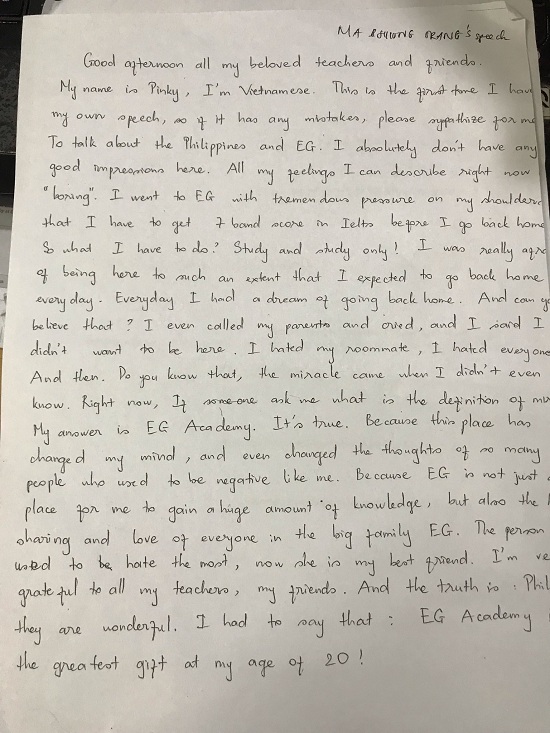 MA PHUONG TRANG's speech
Good afternoon all my beloved teachers and friends.
My name is Pinky, I'm Vietnamese. This is the first time I have
my own speech, so if it has any mistakes, please sypathize for me
To talk about the Philippines and EG. I absolutely don't have any
good impressions here. All my feelings I can describe right now
"boring". I went to EG with tremendous pressure on my shoulders
that I have to get 7 band score in Ielts before I go back home
So what I have to do? Study and study only! I was really
of being here to such an extent that I expected to go back home
everyday. Everyday I had a dream of going back home. And can
believe that? I even called my parents and cried, and I said I
didn't want to be here. I hated my roommate, I hated everyone
And then. Do you know that, the miracle came when I didn't even
know. Right now, If someone ask me what is the definition of
My answer is EG Academy. It's true. Because this place has
changed my mind, and even changed the thoughts of so many
people who used to be negative like me. Because EG is not just
place for me to gain a huge amount of knowledge, but also the
sharing and love of everyone in the big family EG. The person
used to be hate the most, now she is my best friend. I'm
grateful to all my teachers, my friends. And the truth is: Phil
they are wonderful. I had to say that: EG Academy
the greatest gift at my age of 20!